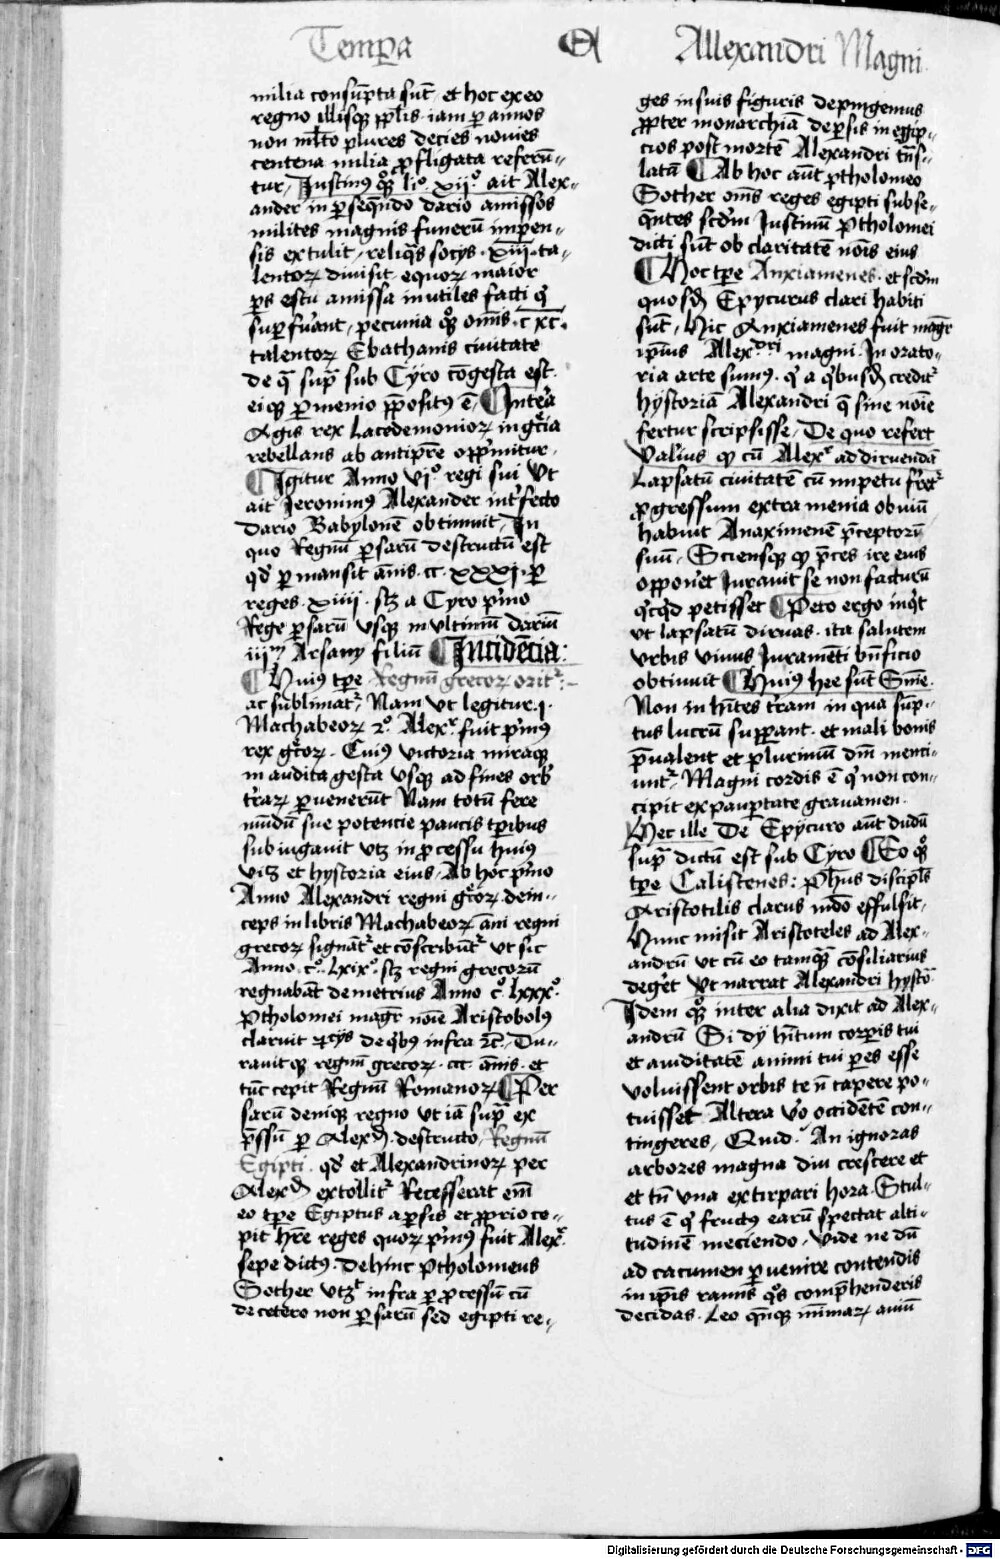 Tempa
A
Allexandri Magni
milia consūpta sūt, et hoc ex eo
regno illisqꝫ ppl̄is iam ꝑ annos
non ml̄to plures decies novies
centena milia ꝓfligata referū-
tur, Justinus qꝫ° li°. xij° ait Alex-
ander in ꝑsequēdo dario amissos
milites magnis funerū inpen-
sis extulit, reliqͥs socijs .xiii. ta-
lentoꝝ divisit equoꝝ maior
ꝑs estu amissa inutiles facti qͥ
suꝑfuerāt, pecunia qꝫ° om̄is .c xc.
talentoꝝ Ebathanis civitate
de qͣ supͣ sub Cyro cōgesta est
eiqꝫ ꝑmenio p̄positus ē, ¶ Intera
Agis rex Lacedemonioꝝ in gͣcia
rebellans ab antipr̄e opp̄mitur,
¶ Igitur Anno vj° regni sui ut
ait Jeronimus Alexander interfecto
dario Babylonē obtinuit, In
quo Regnū ꝑsarū destructū est
qd̄ ꝑmansit ānis .cc. xxxj. ꝑ
reges .xiiii. scꝫ a Cyro pͥmo
Rege ꝑsarū usqꝫ in ultimū dariū
iiiᵐ Arsamy filiū ¶ Incidēcia:
¶ Huius tꝑe Regnū grecoꝝ oritᷣ:-
ac sublimatᷣ, Nam ut legitur .j.
Machabeoꝝ 2°. Alexᷣ fuit pͥmus
rex gͣcoꝝ. Cuius victoria miraqꝫ
inaudita gesta usqꝫ ad fines orbͥ
tr̄aꝝ ꝑvenerūt Nam totū fere
mūdū sue potencie paucis tꝑibus
subiugavit utꝫ in ꝓcessu huius
vite et hystoria eius, Ab hoc pͥmo
Anno Alexandri regni gͣcoꝝ dein-
ceps in libris Machabeoꝝ āni regni
grecoꝝ signātᷣ et cōscribūtᷣ ut sic
Anno .c°. lxix°. scꝫ regni grecorū
regnabāt demetrius Anno c° lxxx°.
Ptholomei magr̄ noīe Aristobolus
claruit de qͥbus infra 2c̄. Du-
ravit qꝫ regnū grecoꝝ .ccc. ānis. et
tūc cepit Regnū Romanoꝝ ¶ Per
sarū deniqꝫ regno ut iā supͣ ex
p̄ssū ꝑ Alexͩ. destructo, Regnū
Egipti. qd̄ et Alexandrinoꝝ per
Alexͩ extollitᷣ Recesserat em̄
eo tꝑe Egiptus a ꝑsis et ꝓprio ce-
pit hr̄e reges quoꝝ pͥmus fuit Alexᷣ
sepe dictus. dehinc Ptholomeus
Sother utꝫ infra ꝑ ꝓcessū cū
decetero non ꝑsarū sed egipti re-
ges in suis figuris depingemus
ꝓpter monarchiā de ꝑsis in egip-
cios post mortē Alexandri trāns-
latā ¶ Ab hoc aūt ptholomeo
Sother om̄s reges egipti subse-
quētes scd̄m Justinū Ptholomei
dicti sūt ob claritatē noīs eius
¶ Hoc tꝑe Anxiamenes. et scd̄m
quosdā Epycurus clari habiti
sūt, Hic Anxiamenes fuit magr̄
ip̄ius Alexᵈʳⁱ magni. In orato-
ria arte sum̄us. qͥ a qͥbusdā creditᷣ
hystoriā Alexandri q̄ sine noīe
fertur scripsisse, De quo refert
Valius qͥ cū Alexᷣ ad diruendā
Lapsatū civitatē cū inpetu ferretᷣ
ꝓgressum extra menia obviū
habuit Anaximenē p̄ceptorē
suū, Sciensqꝫ qͥ p̄ces ire eius
opponēt Juravit se non facturū
qͥcqͥd petisset ¶ Peto ergo inqͥt
ut lapsatū diruas. ita salutem
urbis unius Juramēti bn̄ficio
obtinuit ¶ Huius hee sūt Sm̄e.
Non inhites tr̄am in qua sūp-
tus lucrū supꝑant. et mali bonis
p̄valent et plurimū dn̄i menti-
untᷣ, Magni cordis ē qͥ non con-
cipit ex paupertate gravamen.
Hec ille De Epycuro aūt dudū
supͣ dictū est sub Cyro ¶ Eo qꝫ°
tꝑe Calistenes: ph̄us discipl̄s
Aristotilis clarus mūdo effulsit,
Hunc misit Aristoteles ad Alex-
andrū ut cū eo tamqͣm cōsiliarius
degēt ut narrat Alexandri hystoͥ
Idem qꝫ° inter alia dixit ad Alex-
andrū Si dij h̄itum corꝑis tui
et aviditatē animi tui ꝑes esse
voluissent orbis te n̄ capere po-
tuisset. Altera v̄o occidētē con-
tingeres, Quid. An ignoras
arbores magna diu crescere et
et tn̄ una extirpari hora. Stul-
tus ē qͥ fructus earū spectat alti-
tudinē meciendo, vide ne dū
ad cacumen ꝑvenire contendis
in ip̄is ramis qͦs comp̄henderis
decidas. Leo qn̄qꝫ minimaꝝ aviū
Digitalisierung gefördert durch die Deutsche Forschungsgemeinschaft - DFG